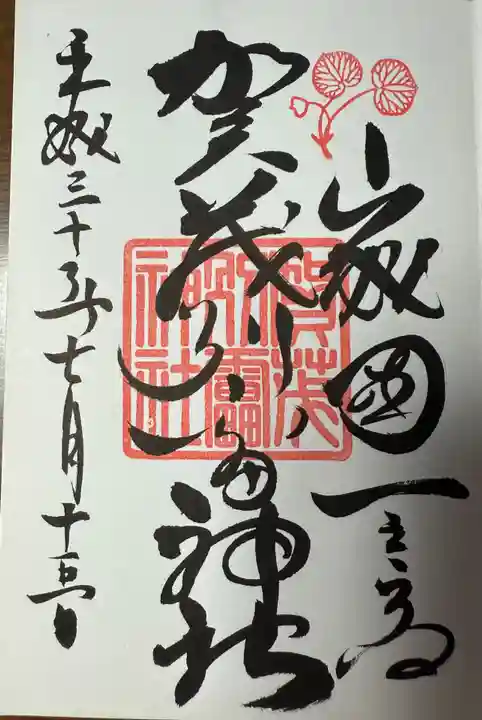 山城國一之宮
賀茂別雷神社
賀茂別雷神社
平成三十年七月十五日